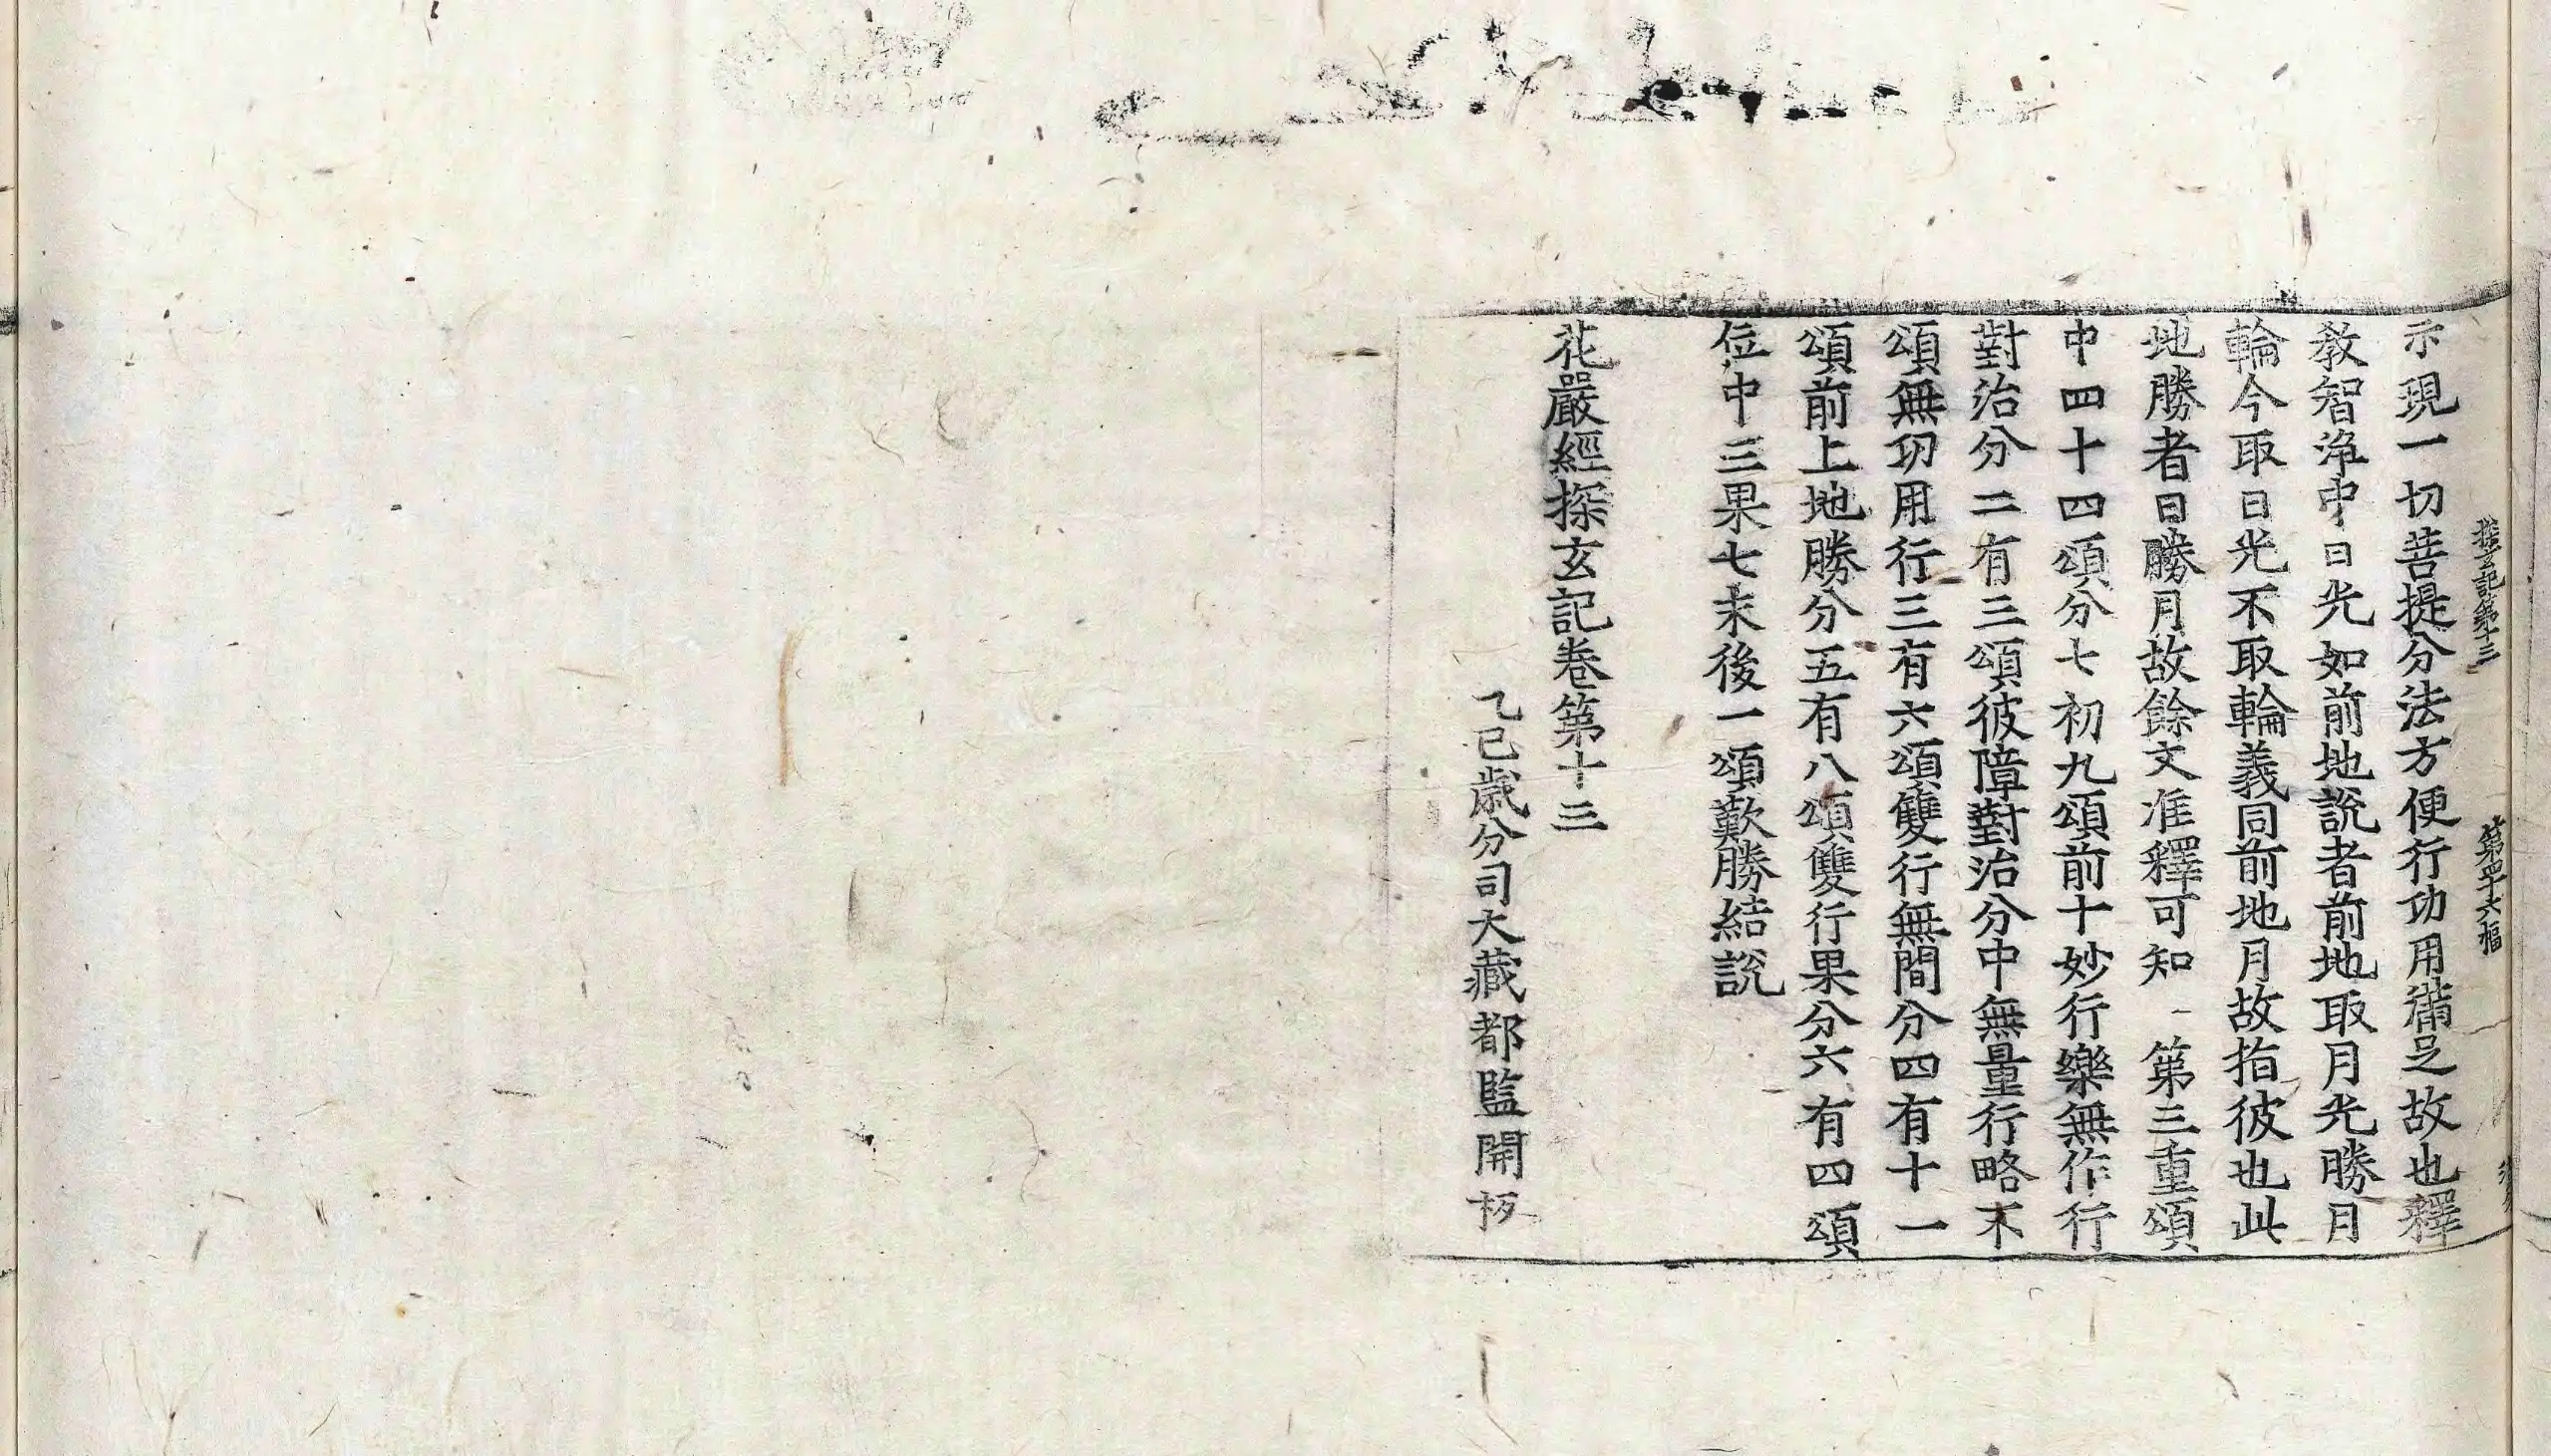 探玄記第十三 第四十六幅
示現一切菩提分法方便行功用滿足故也釋
教智淨中日光如前地說者前地取月光勝月
輪今取日光不取輪義同前地月故指彼也此
地勝者日勝月故餘文准釋可知 第三重頌
中四十四頌分七初九頌前十妙行樂無作行
對治分二有三頌彼障對治分中無量行略不
頌無功用行三有六頌雙行無間分四有十一
頌前上地勝分五有八頌雙行果分六有四頌
位中三果七末後一頌歎勝結說
花嚴經探玄記卷第十三
乙巳歲分司大藏都監開板